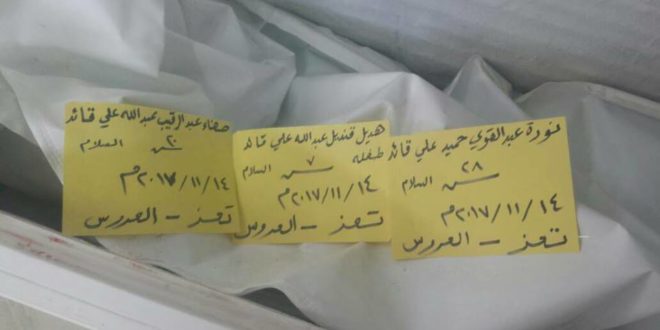 نورة عبدالقوي حميد علي قائد
٢٨ س السلام
٢٠١٧/١١/١٤م
تعز - العروس
هديل قنديل عبدالله علي قائد
طفله
٧ س السلام
٢٠١٧/١١/١٤م
تعز - العروس
صفاء عبدالرقيب عبدالله علي قائد
٢٠ س السلام
٢٠١٧/١١/١٤م
تعز - العروس